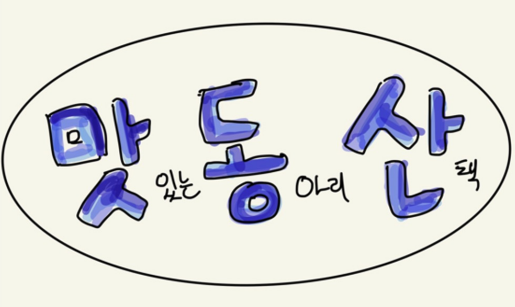 맛있는 동아리 산택